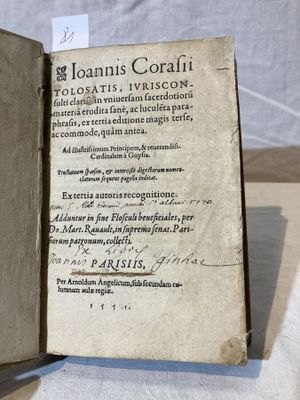 81
Ioannis Corasii
TOLOSATIS, IVRISCON-
sulti clariss. in vniuersam sacerdotiorū
materiā erudita sanè, ac luculēta para-
phrasis, ex tertia editione magis terse,
ac commode, quàm antea.
Ad illustrissimum Principem, & reuerendiss.
Cardinalem à Guysia.
Tractatuum sparsim, & intercisè digestorum nomen-
claturam sequens pagella indicat.
Ex tertia autoris recognitione.
Adduntur in fine Flosculi beneficiales, per
Do. Mart. Rauault, in supremo senat. Pari-
siorum patronum, collecti.
Ex Libris
Ioannis
ginhac
PARISIIS,
Per Arnoldum Angelicum, sub secundam co-
lumnam aulæ regiæ.